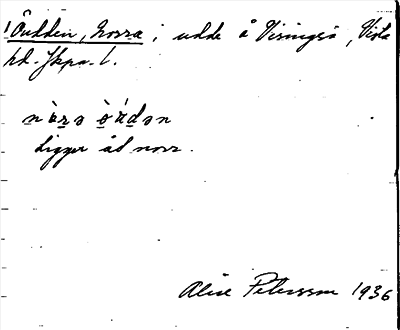 Öudden, Norra; udde å Visingsö, Vista
hd. Jkpn. l.
nòrə ö̀ʹdən
Ligger åt norr.
Alice Petersson 1936